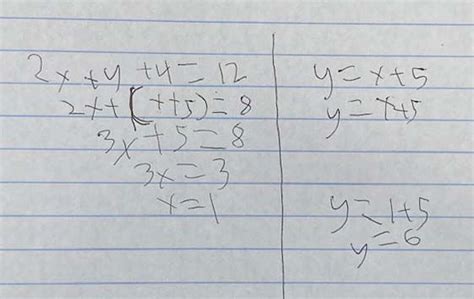 2x+y+4=12
2x+(x+5)=8
3x+5=8
3x=3
x=1
y=x+5
y=x+5
y=1+5
y=6